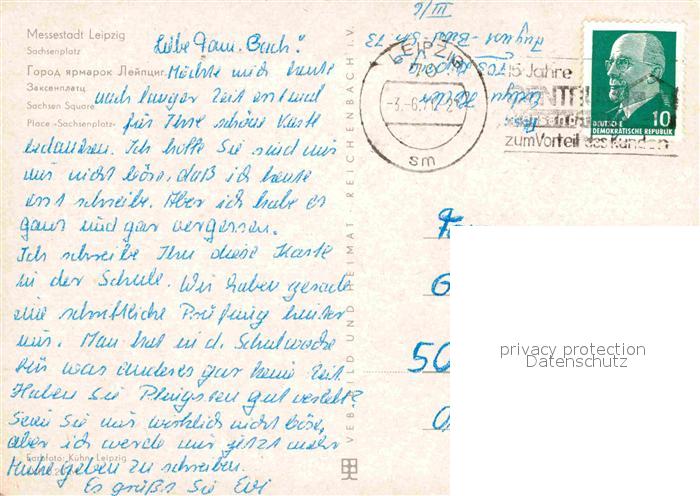 Messestadt Leipzig
Sachsenplatz
Город ярмарок Лейпциг
Заксенплатц
Sachsen Square
Place «Sachsenplatz»
Liebe Fam. Bach!
Möchte mich heute
nach langer Zeit erst mal
für Ihre schöne Karte
bedanken. Ich hoffe Sie sind mir
nur nicht böse, daß ich heute
erst schreibe. Aber ich habe es
ganz und gar vergessen.
Ich schreibe Ihn diese Karte
in der Schule. Wir haben gerade
eine schriftliche Prüfung hinter
uns. Man hat in d. Schulwoche
für was anderes gar keine Zeit.
Haben Sie Pfingsten gut verlebt?
Seien Sie mir wirklich nicht böse,
aber ich werde mir jetzt mehr
Mühe geben zu schreiben.
Es grüßt Sie Evi
Farbfoto: Kühn, Leipzig
VEB BILD UND HEIMAT REICHENBACH I. V.
III/6
LEIPZIG
sm
15 Jahre
CENTRUM
zum Vorteil des Kunden
10
DEUTSCHE
DEMOKRATISCHE REPUBLIK
50
privacy protection
Datenschutz